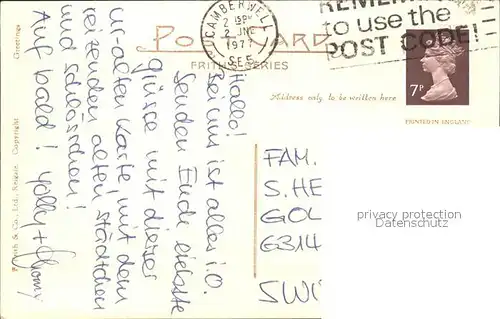 CAMBERWELL
2 15PM
2 JNE
1977
S.E.5
REMEMBER
to use the
POST CODE!
POST CARD
FRITH SERIES
Address only to be written here
7P
PRINTED IN ENGLAND
Greetings
Frith & Co., Ltd., Reigate. Copyright
Hallo!
Bei uns ist alles i.O.
Senden Euch liebste
Grüsse mit dieser
ur-alten Karte, mit dem
reizenden alten Städtchen
und Schlösschen!
Auf bald!
FAM.
S. HE
GOL
6314
SWI
privacy protection
Datenschutz